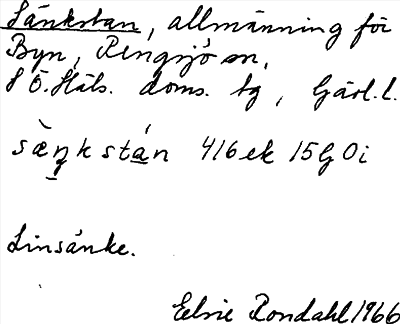 Sänkstan, allmänning för
Byn, Rengsjö sn,
S Ö. Häls. doms. tg, Gävl. l.
sæ̀ŋkstán 416ek 15G0i
Linsänke.
Elsie Rondahl 1966